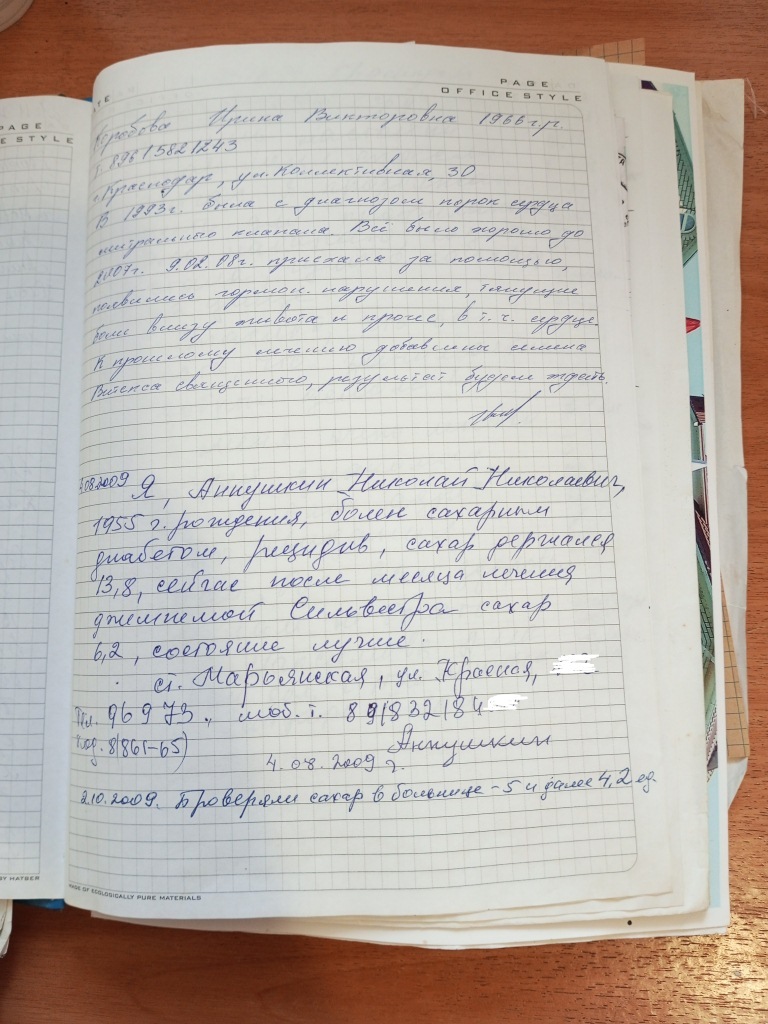 PAGE
E STYLE
YTE
PAGE
OFFICE STYLE
Коробова Ирина Викторовна 1966 г.р.
т. 89615821243
г. Краснодар, ул. Коллективная, 30
В 1993г. была с диагнозом порок сердца
митрального клапана. Всё было хорошо до
2007г. 9.02.08г. приехала за помощью,
появились гормон. нарушения, тянущие
боли внизу живота и прочие, в т.ч. сердце.
К прошлому лечению добавлены семена
Витекса священного, результат будем ждать.
.08.2009 Я, Аннушкин Николай Николаевич,
1955 г. рождения, болен сахарным
диабетом, рецидив, сахар держался
13,8, сейчас после месяца лечения
джимнемой Сильвестра сахар
6,2, состояние лучше.
ст. Марьянская, ул. Красная,
Тел. 96973., моб. т. 891832184
код. 8(861-65)
Аннушкин
4.08.2009 г.
2.10.2009. Проверяли сахар в больнице - 5 и далее 4,2 ед.
BY HATBER
OF ECOLOGICALLY PURE MATERIALS